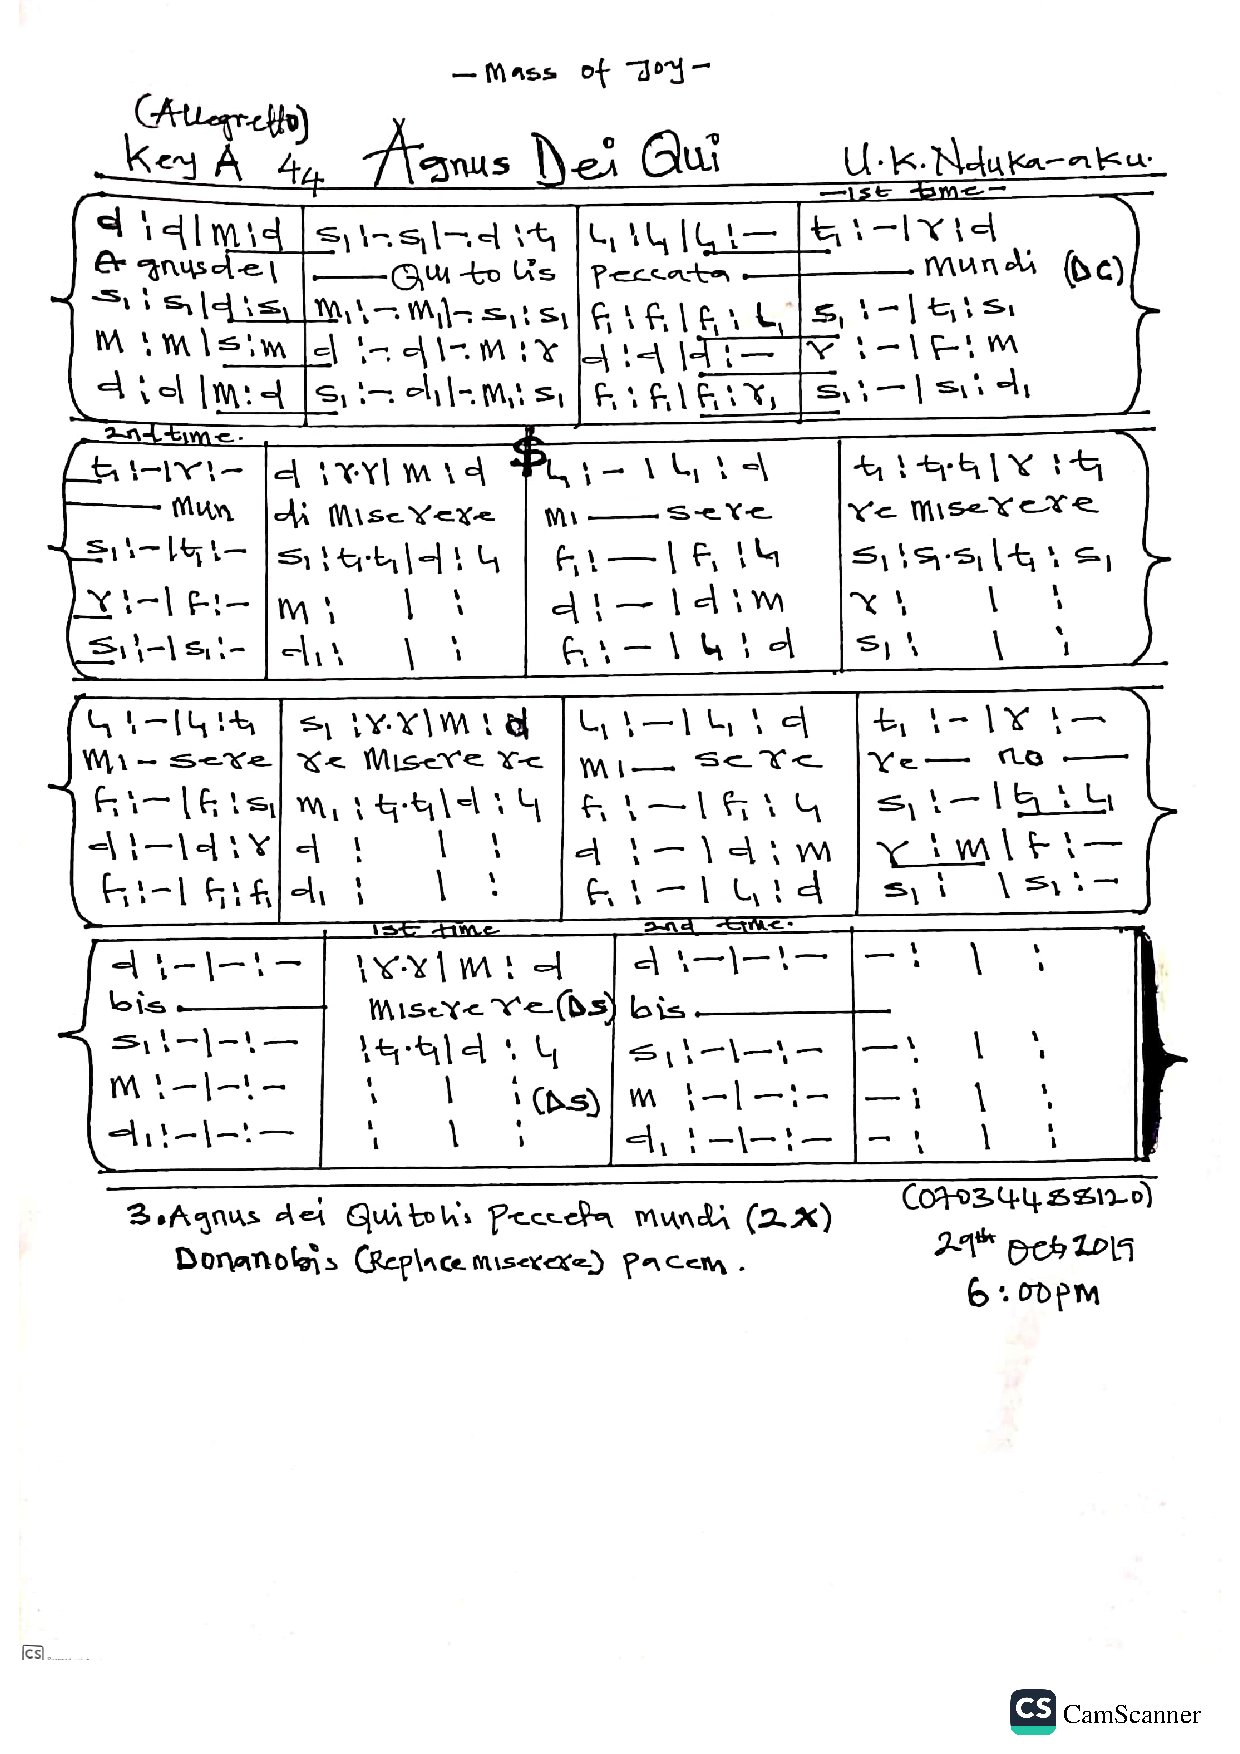 - Mass of Joy -
(Allegretto)
Key A 44 Agnus Dei Qui U.K.Nduka-aku.
-1st time-
d : d | m : d | s₁ :-. s₁ |-. d : t₁ | l₁ : l₁ | l₁ : - | t₁ : - | r : d
A gnusdei ——— Qui to lis peccata ——— mundi (DC)
s₁ : s₁ | d : s₁ | m₁ :-. m₁ |-. s₁ : s₁ | f₁ : f₁ | f₁ : l₁ | s₁ : - | t₁ : s₁
m : m | s : m | d :-. d |-. m : r | d : d | d : - | r : - | f : m
d : d | m : d | s₁ :-. d₁ |-. m₁ : s₁ | f₁ : f₁ | f₁ : r₁ | s₁ : - | s₁ : d₁
2nd time.
t₁ : - | r : - | d : r.r | m : d | $ l₁ : - | l₁ : d | t₁ : t₁.t₁ | r : t₁
——— mun di miserere mi —— sere re miserere
s₁ : - | t₁ : - | s₁ : t₁.t₁ | d : l₁ | f₁ : — | f₁ : l₁ | s₁ : s₁.s₁ | t₁ : s₁
r : - | f : - | m : | : | d : - | d : m | r : | :
s₁ : - | s₁ : - | d₁ : | : | f₁ : - | l₁ : d | s₁ : | :
l₁ : - | l₁ : t₁ | s₁ : r.r | m : d | l₁ : - | l₁ : d | t₁ : - | r : -
mi - sere re miserere mi — sere re — no —
f₁ : - | f₁ : s₁ | m₁ : t₁.t₁ | d : l₁ | f₁ : - | f₁ : l₁ | s₁ : - | t₁ : l₁
d : - | d : r | d : | : | d : - | d : m | r : m | f : -
f₁ : - | f₁ : f₁ | d₁ : | : | f₁ : - | l₁ : d | s₁ : | s₁ : -
1st time 2nd time.
d : - | - : - | : r.r | m : d | d : - | - : - | - : | :
bis ——— miserere (DS) bis. ———
s₁ : - | - : - | : t₁.t₁ | d : l₁ | s₁ : - | - : - | - : | :
m : - | - : - | : | : (DS) | m : - | - : - | - : | :
d₁ : - | - : - | : | : | d₁ : - | - : - | - : | :
3. Agnus dei Quitolis Pecceta mundi (2X)
Donanobis (Replace miserere) pacem.
(07034488120)
29th Oct 2019
6:00pm
CS
CS CamScanner